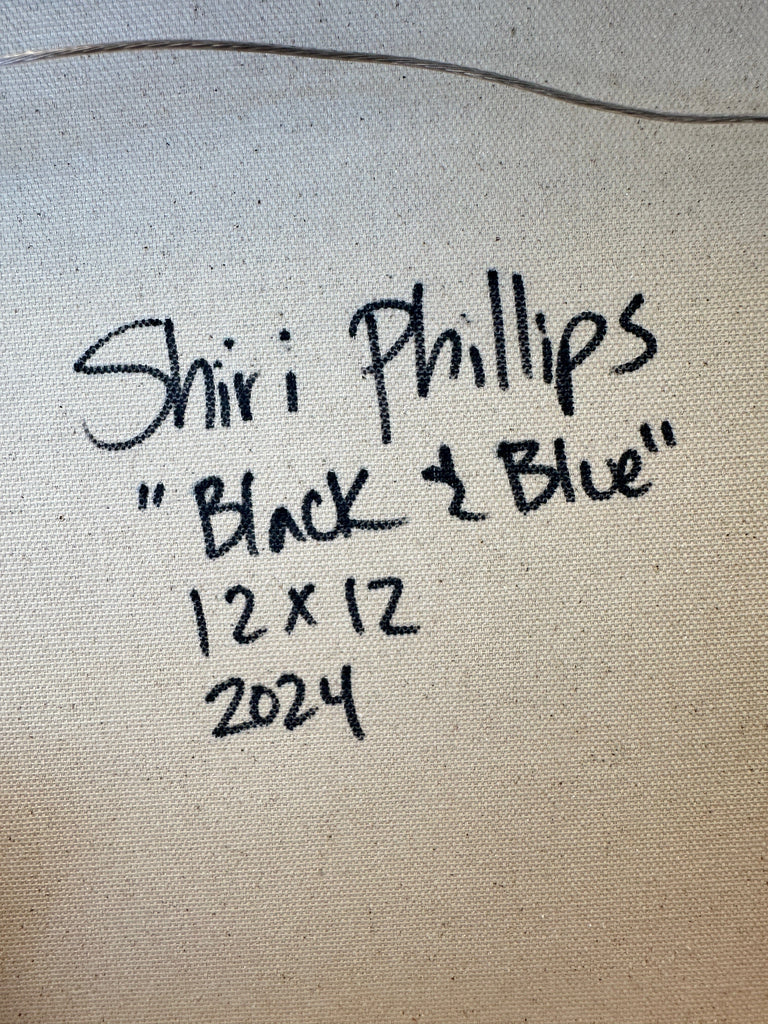 Shiri Phillips
"Black & Blue"
12 x 12
2024